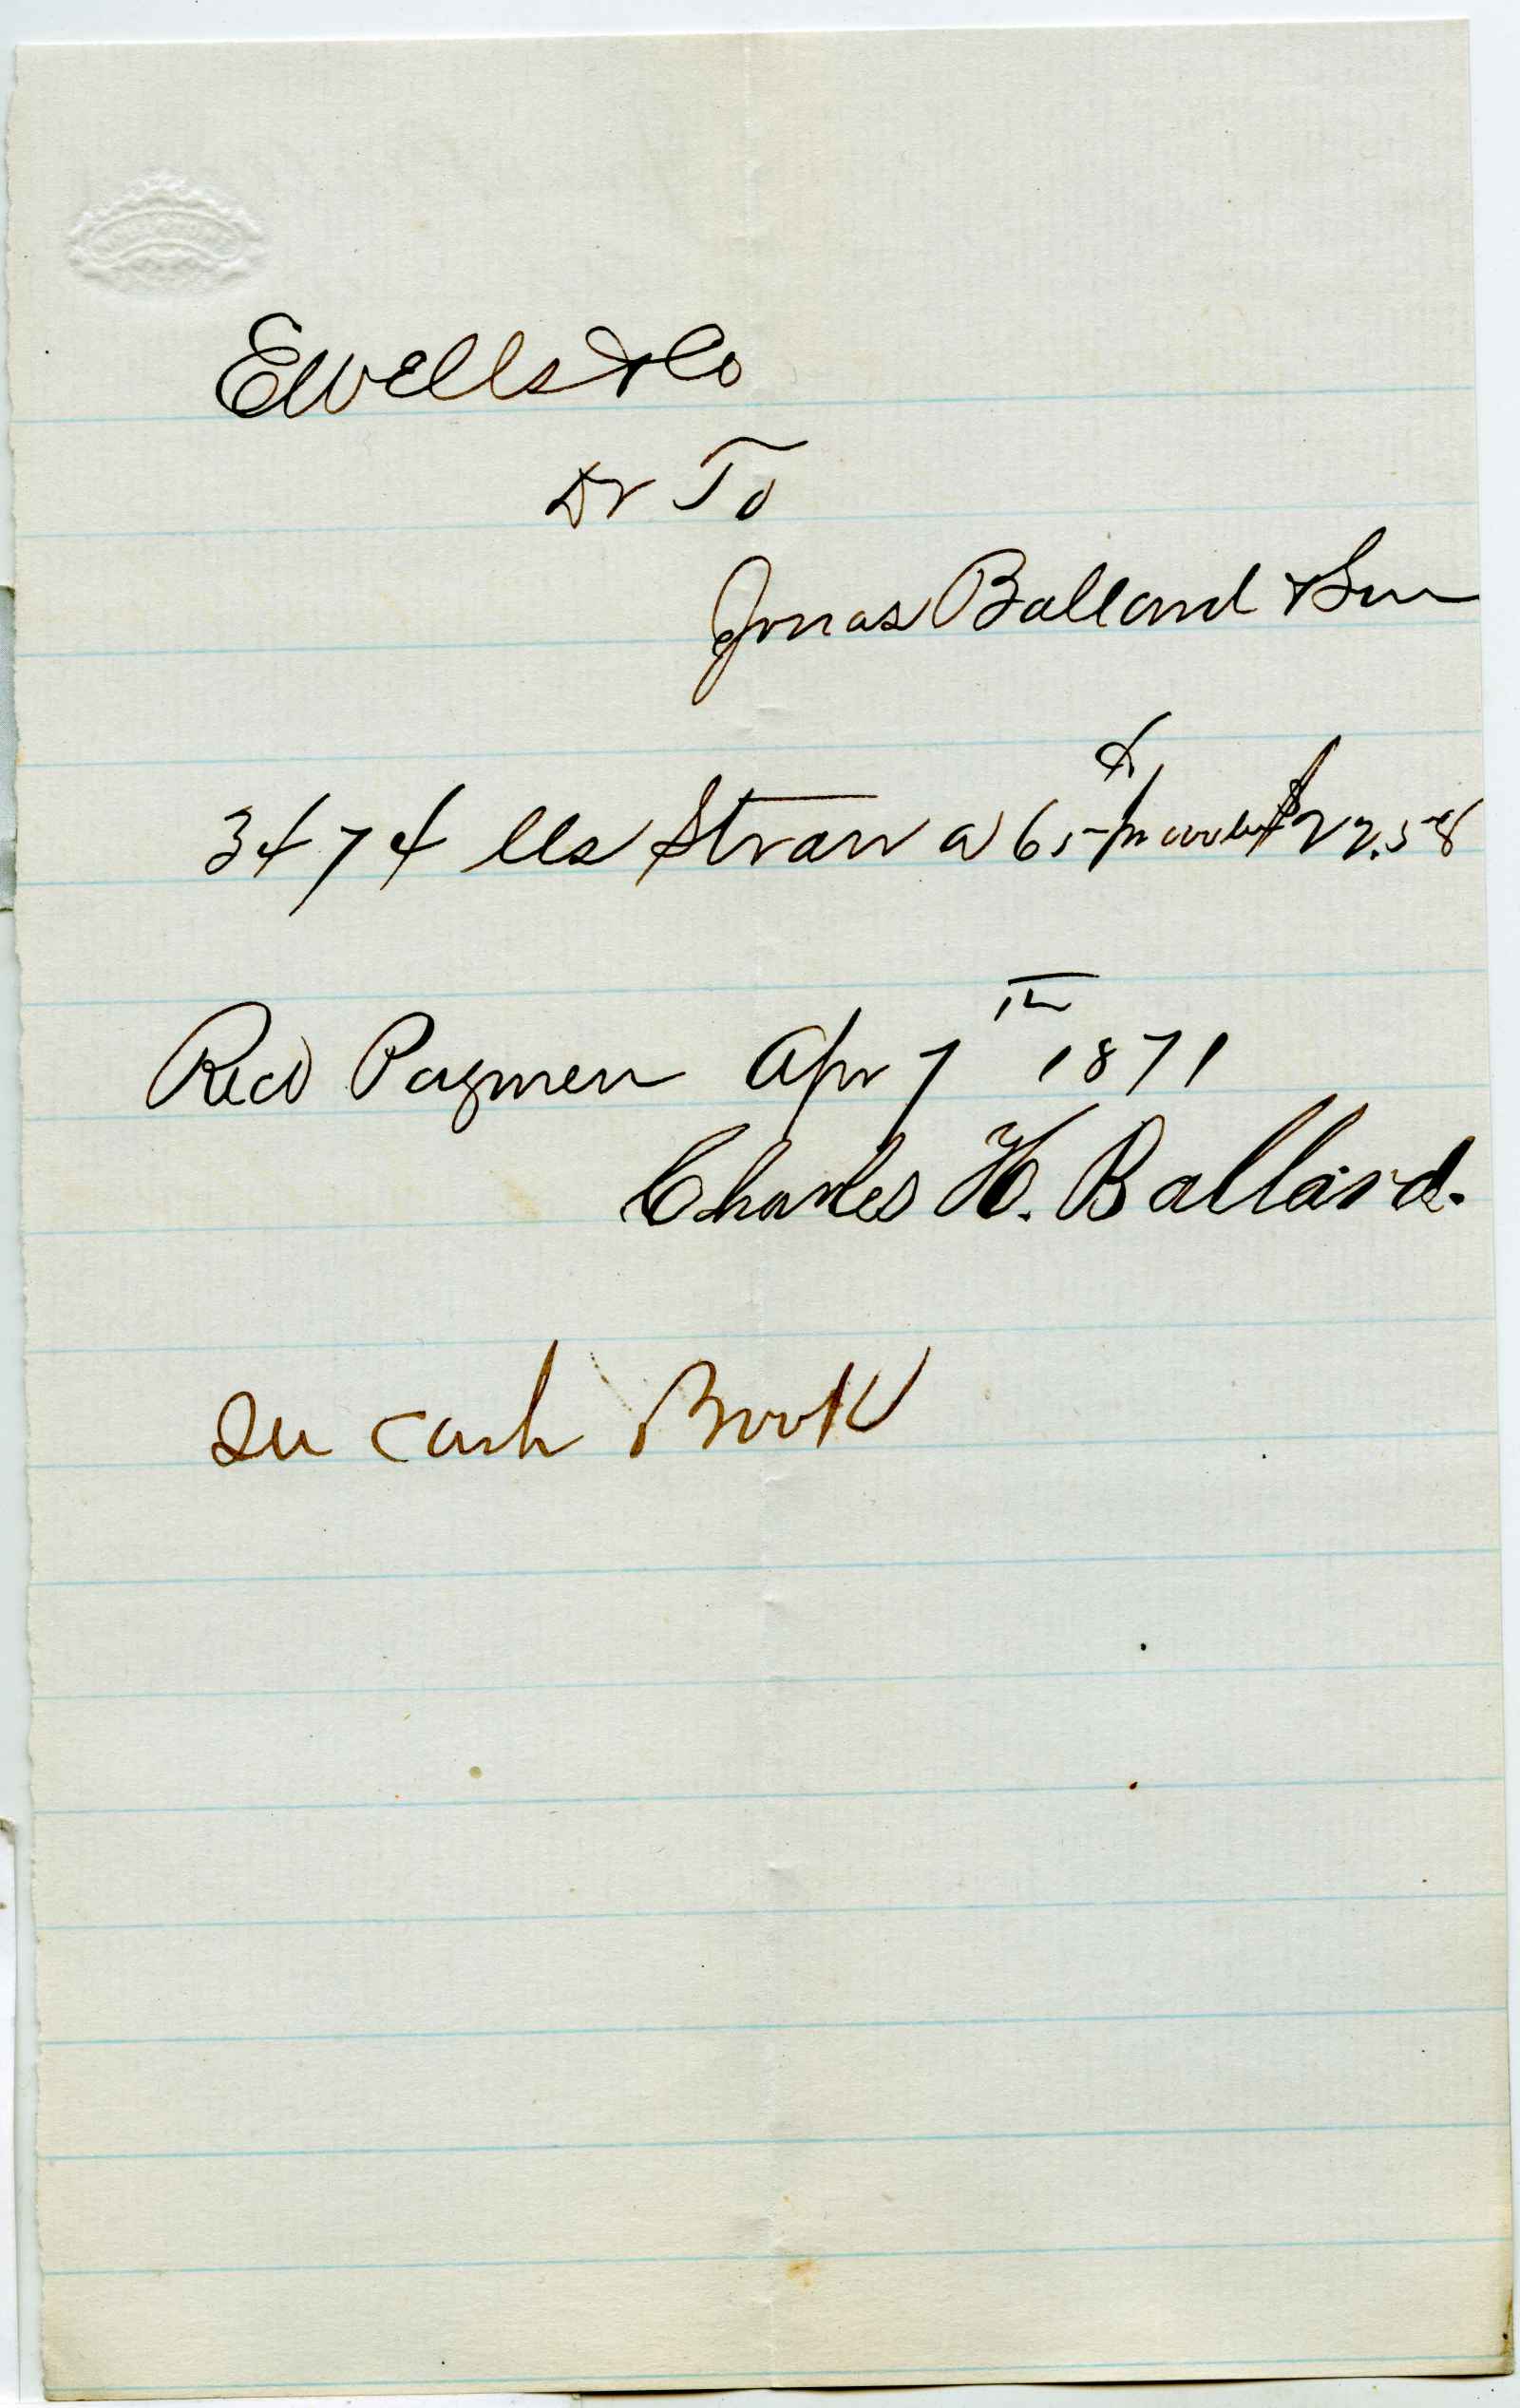 E Wells & Co
Dr To
Jonas Ballard & Son
3474 lbs Straw a 65 cts pr $22.58
Recd Paymen Apr 7th 1871
Charles H. Ballard.
In Cash Book